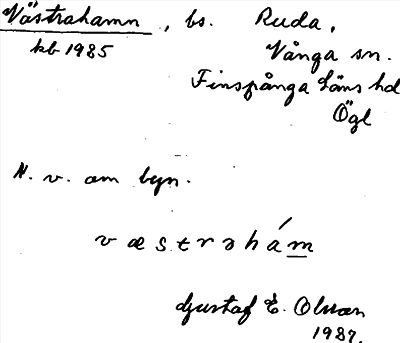 Västrahamn, bs. Ruda,
kb 1985
Vånga sn.
Finspånga Läns hd
Ögl
N. v. om byn.
v æ s t r ə h á m
Gustaf E. Olsson
1987.